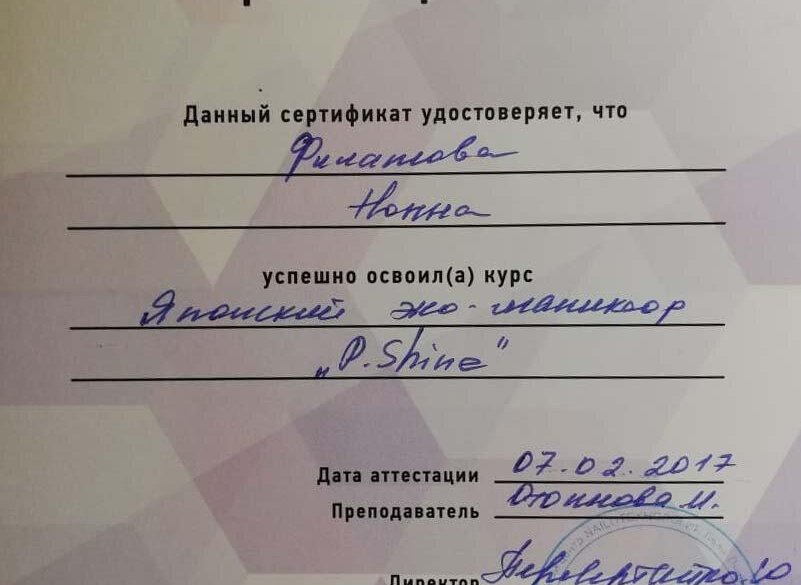 Данный сертификат удостоверяет, что
Филатова
Нонна
успешно освоил(а) курс
Японский эко-маникюр
„P.Shine"
Дата аттестации 07.02.2017
Преподаватель
Директор